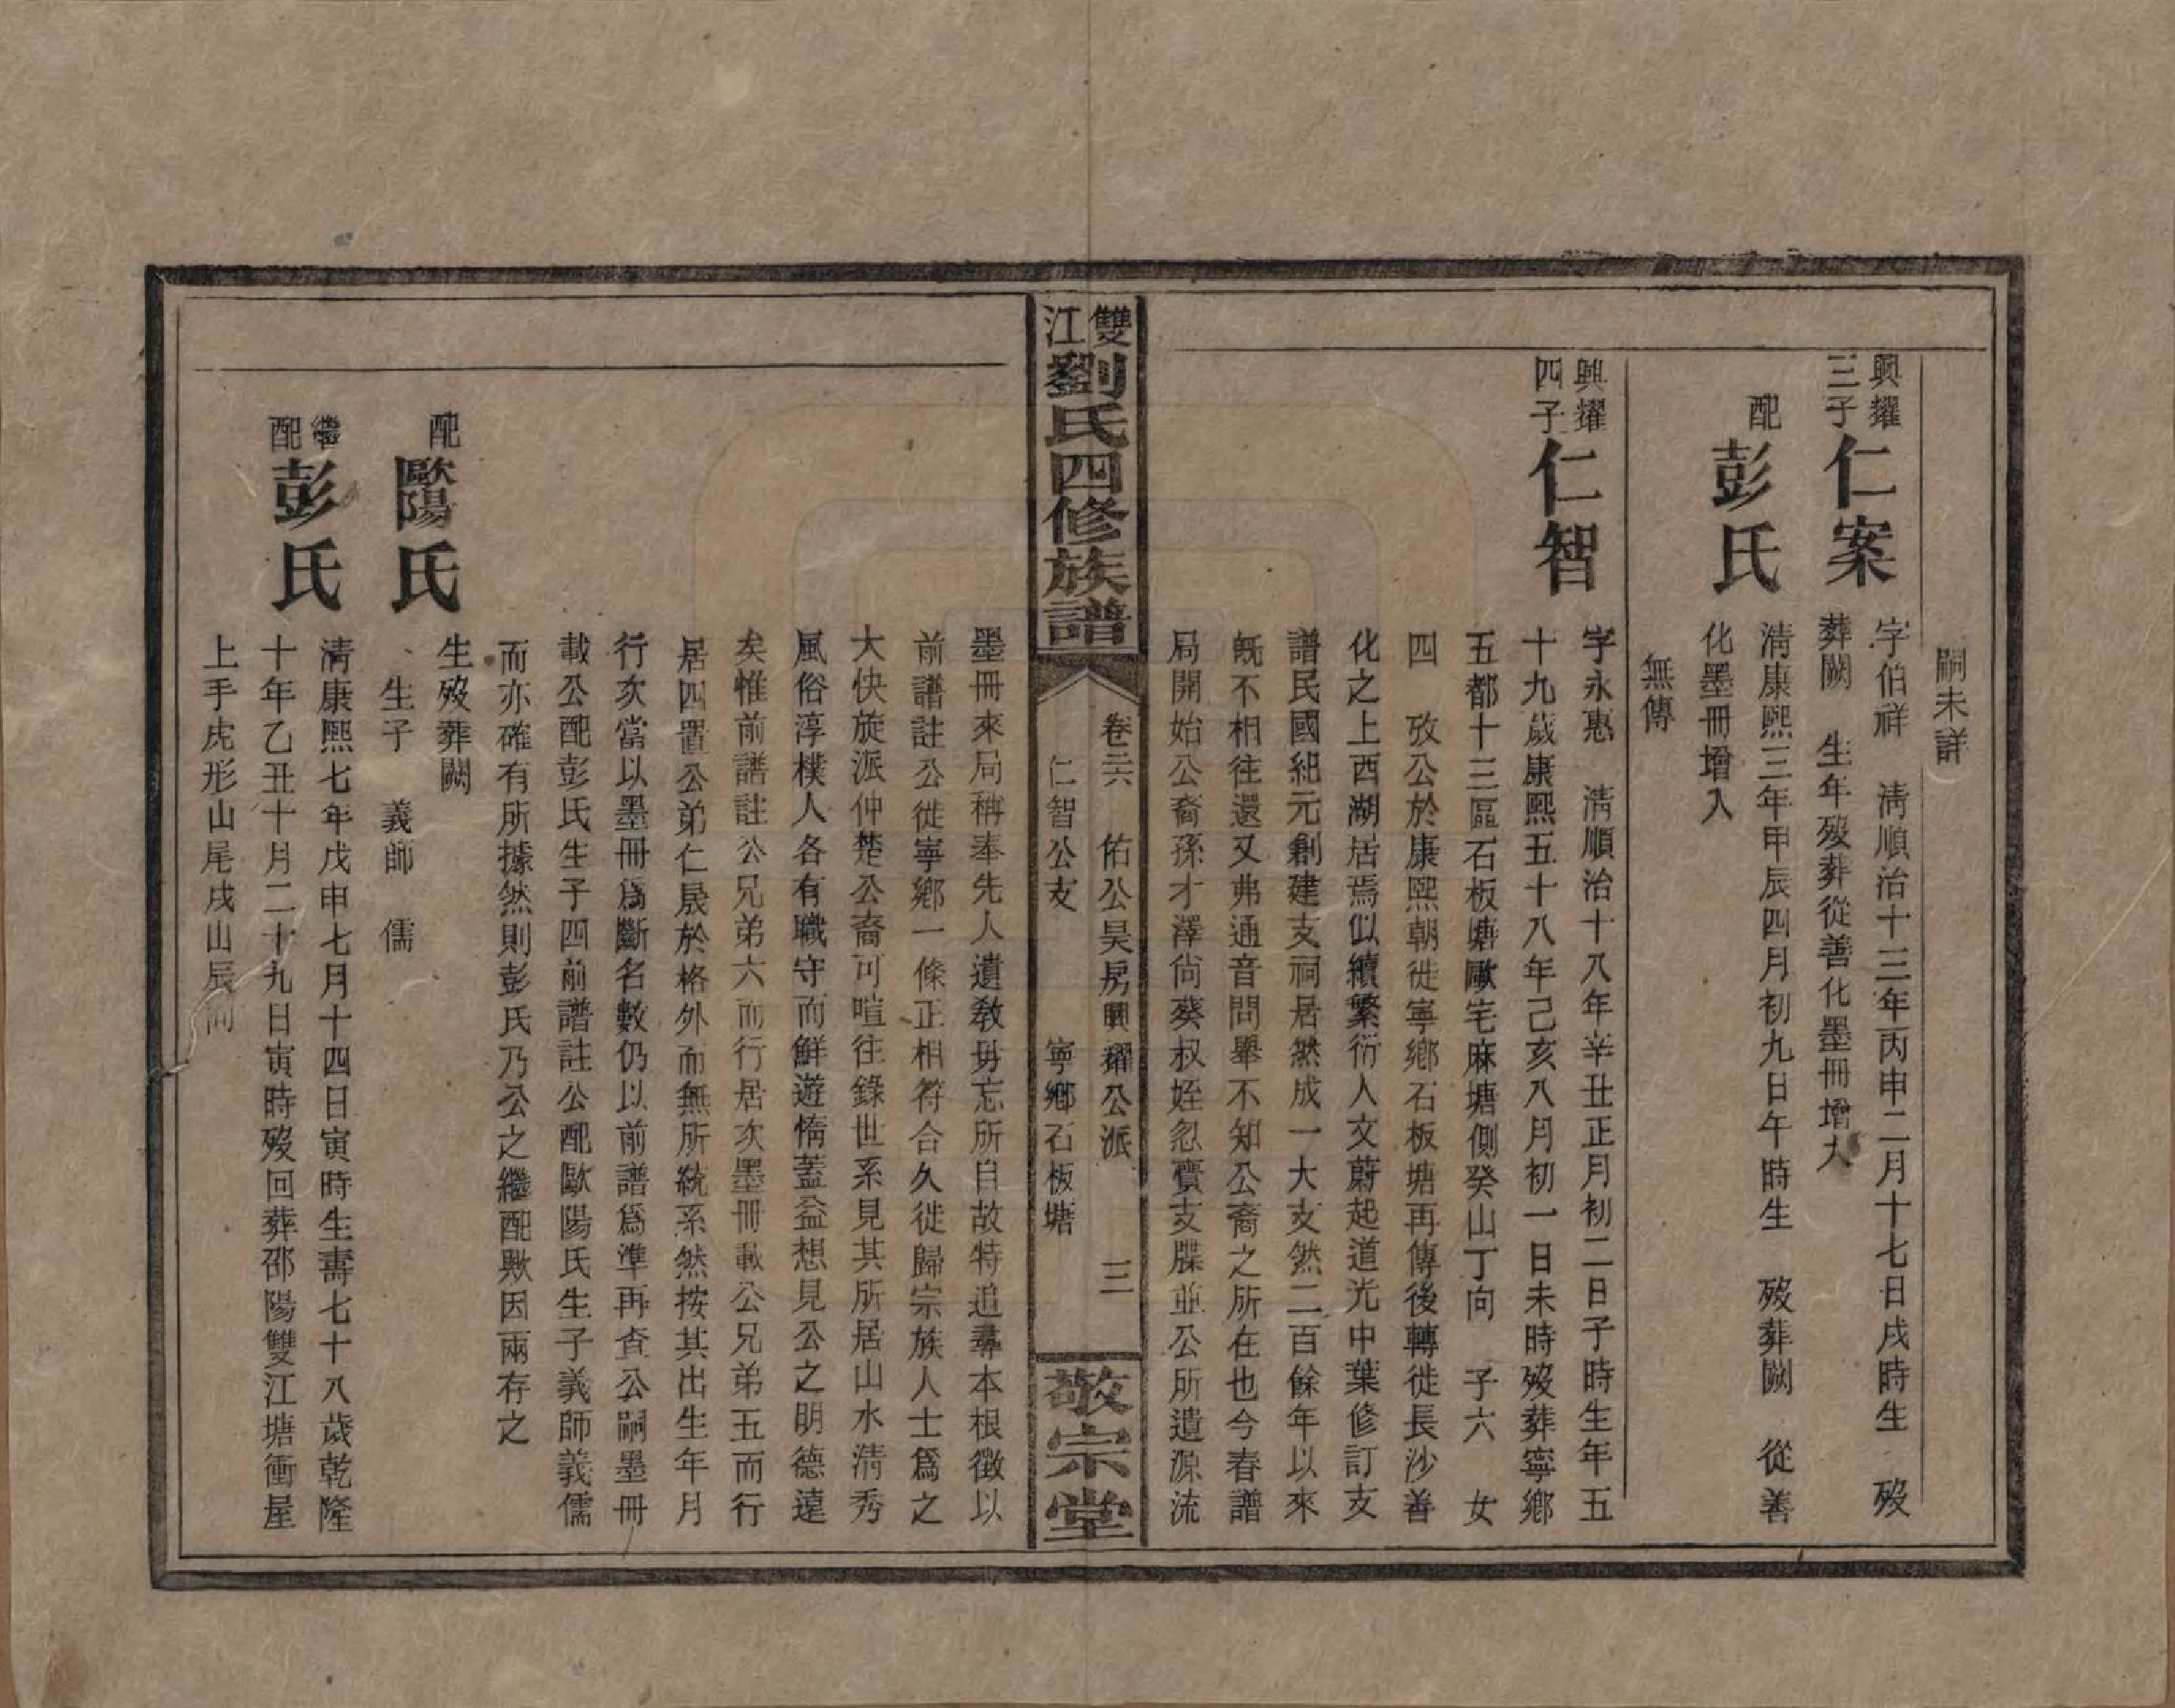 嗣未詳
興耀三子 仁案 字伯祥 清順治十三年丙申二月十七日戌時生 歿
葬闕 生年歿葬從善化墨冊增入
配 彭氏 清康熙三年甲辰四月初九日午時生 歿葬闕 從善
化墨冊增入
無傳
興耀四子 仁智 字永惠 清順治十八年辛丑正月初二日子時生年五
十九歲康熙五十八年己亥八月初一日未時歿葬寧鄉
五都十三區石板塘歐宅麻塘側癸山丁向 子六 女
四 攷公於康熙朝徙寧鄉石板塘再傳後轉徙長沙善
化之上西湖居焉似續繁衍人文蔚起道光中葉修訂支
譜民國紀元創建支祠居然成一大支然二百餘年以來
既不相往還又弗通音問舉不知公裔之所在也今春譜
局開始公裔孫才澤尙葵叔姪忽賷支牒並公所遺源流
雙江劉氏四修族譜
卷三六 佑公昊房興耀公派 三
仁智公支 寧鄉石板塘
敬宗堂
墨冊來局稱奉先人遺敎毋忘所自故特追尋本根徵以
前譜註公徙寧鄉一條正相符合久徙歸宗族人士爲之
大快旋派仲楚公裔可喧往錄世系見其所居山水清秀
風俗淳樸人各有職守而鮮遊惰蓋益想見公之明德遠
矣惟前譜註公兄弟六而行居次墨冊載公兄弟五而行
居四置公弟仁晟於格外而無所統系然按其出生年月
行次當以墨冊爲斷名數仍以前譜爲準再查公嗣墨冊
載公配彭氏生子四前譜註公配歐陽氏生子義師義儒
而亦確有所據然則彭氏乃公之繼配歟因兩存之
配 歐陽氏 生歿葬闕
生子 義師 儒
繼配 彭氏 清康熙七年戊申七月十四日寅時生壽七十八歲乾隆
十年乙丑十月二十九日寅時歿回葬邵陽雙江塘衝屋
上手虎形山尾戌山辰向